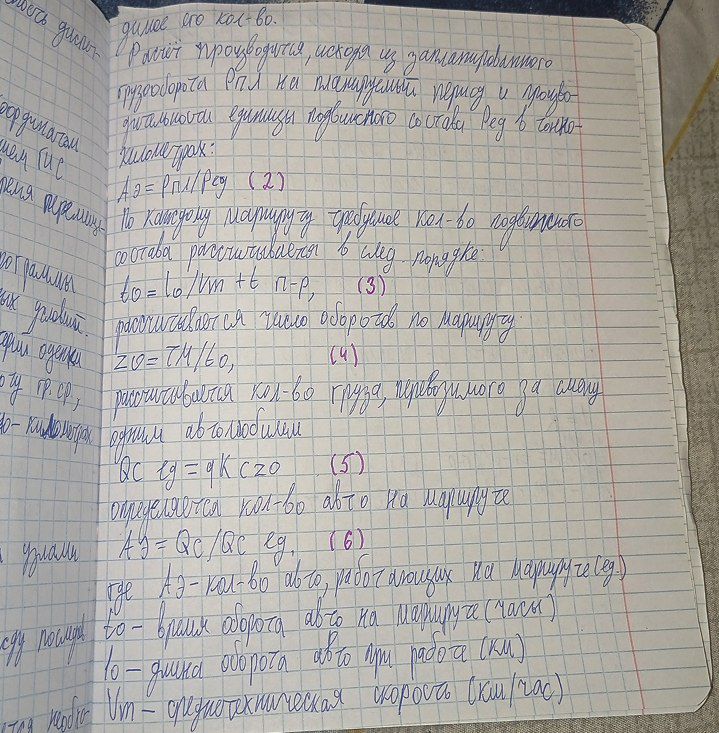 димое его кол-во.
Расчёт производится, исходя из запланированного
грузооборота Pпл на планируемый период и произво-
дительности единицы подвижного состава Pед в тонно-
километрах:
Aэ = Pпл/Pед (2)
По каждому маршруту требуемое кол-во подвижного
состава рассчитывается в след. порядке:
to = lo/Vm + t п-р, (3)
рассчитывается число оборотов по маршруту:
zo = Tм/to, (4)
рассчитывается кол-во груза, перевозимого за смену
одним автомобилем
Qc ед = qKczo (5)
определяется кол-во авто на маршруте
Aэ = Qc/Qc ед, (6)
где Aэ - кол-во авто, работающих на маршруте (ед.)
to - время оборота авто на маршруте (часы)
lo - длина оборота авто при работе (км)
Vm - среднетехническая скорость (км/час)
ординатам
ГИС
ограммы
условий.
оценки
гр. ср.,
о-километрах
узлами